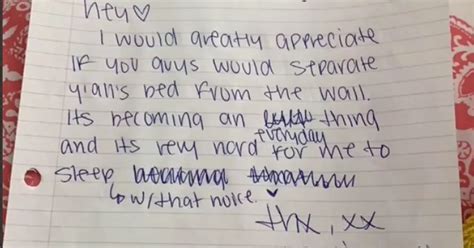 hey♡
I would greatly appreciate
if you guys would separate
yian's bed from the wall.
Its becoming an everyday thing
and its very hard for me to
sleep
↳ w/ that noise.
thx, xx